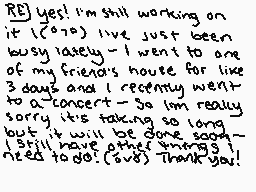 RE) yes! I'm still working on
it !(°7°) I've just been
busy lately - I went to one
of my friend's house for like
3 days and I recently went
to a concert - So I'm really
sorry it's taking so long
but it will be done soon-
I still have other things I
need to do! (ôvô) Thank you!